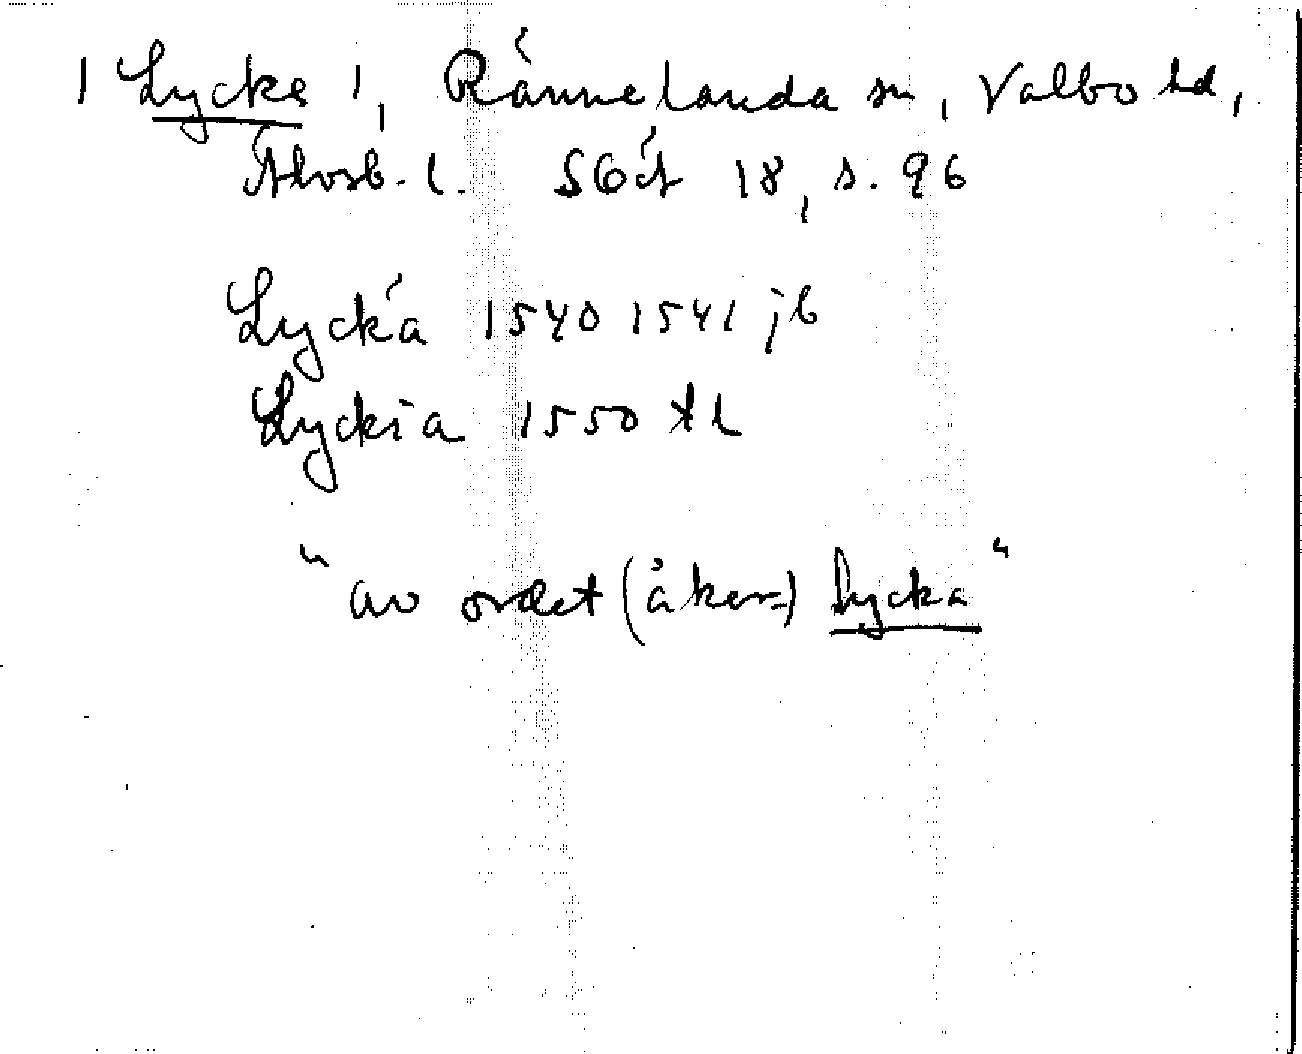 | Lycke |, Rännelanda sn, Valbo hd,
Älvsb. l. SGÄ 18, s. 96
Lyckä 1540 1541 jb
Lyckia 1550 tl
"av ordet (åker-) lycka"